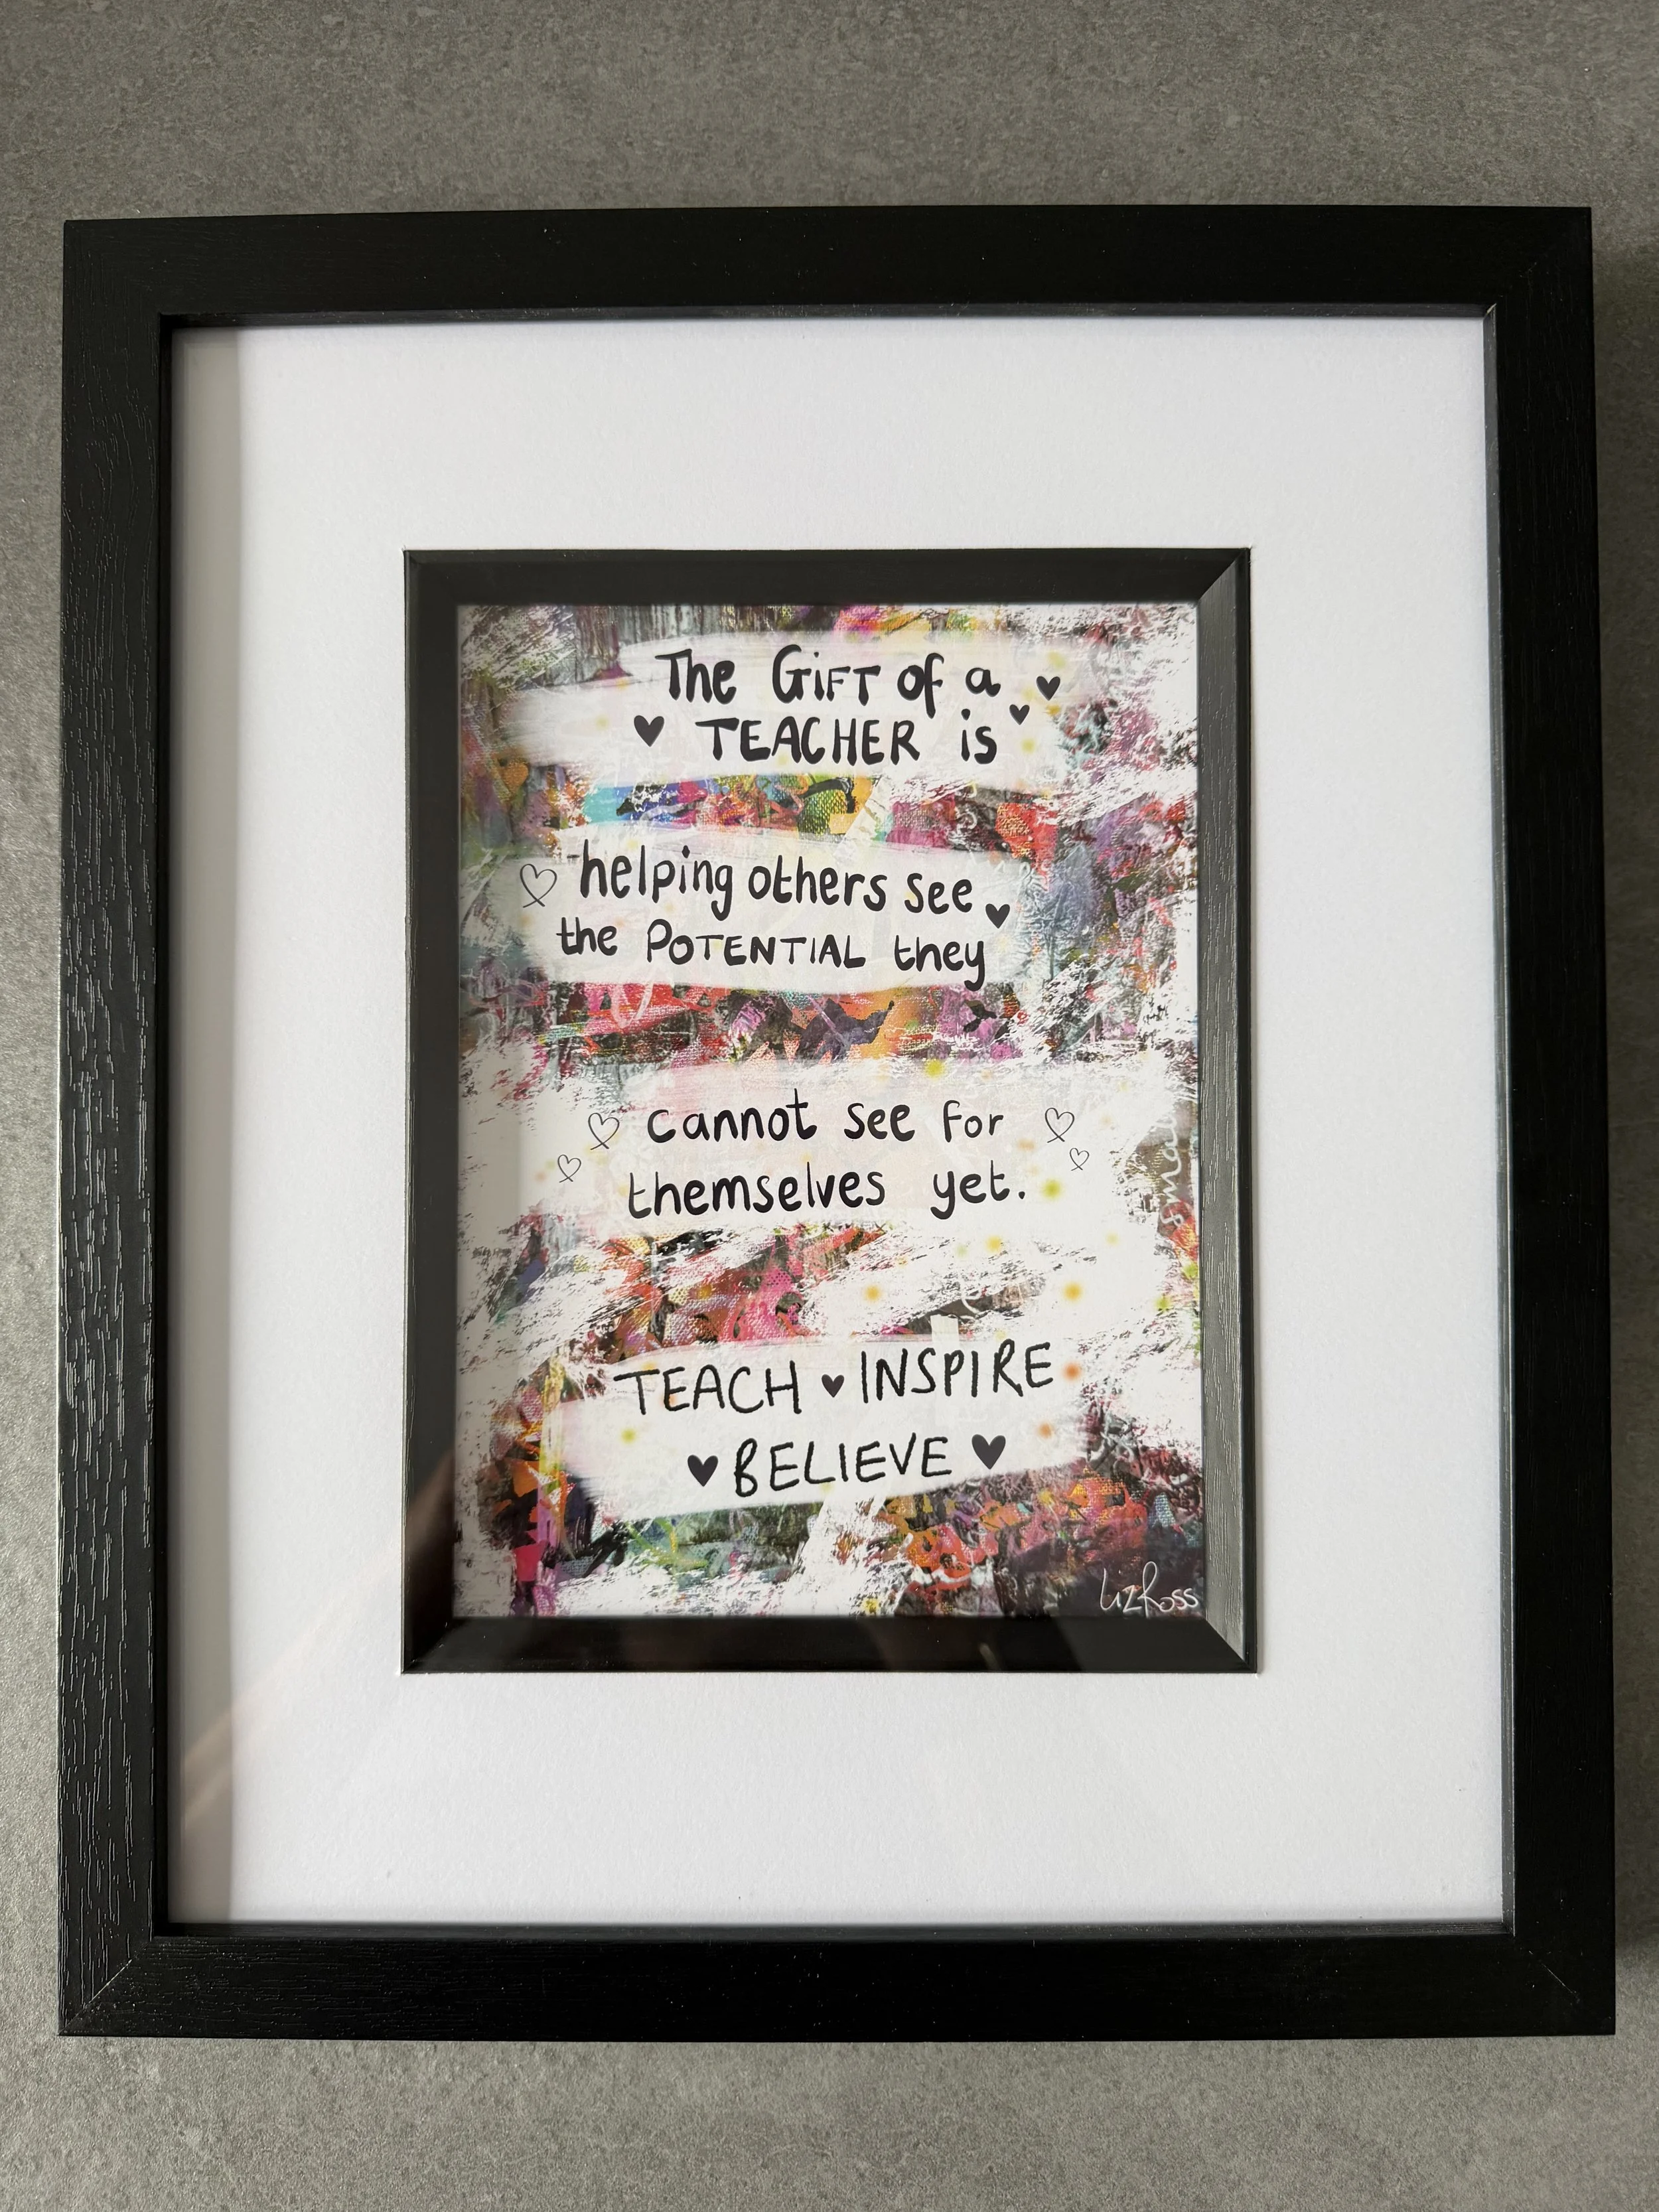 The GiFT of a
TEACHER is
helping others see
the POTENTIAL they
cannot see for
themselves yet.
TEACH INSPIRE
BELIEVE
Liz Ross